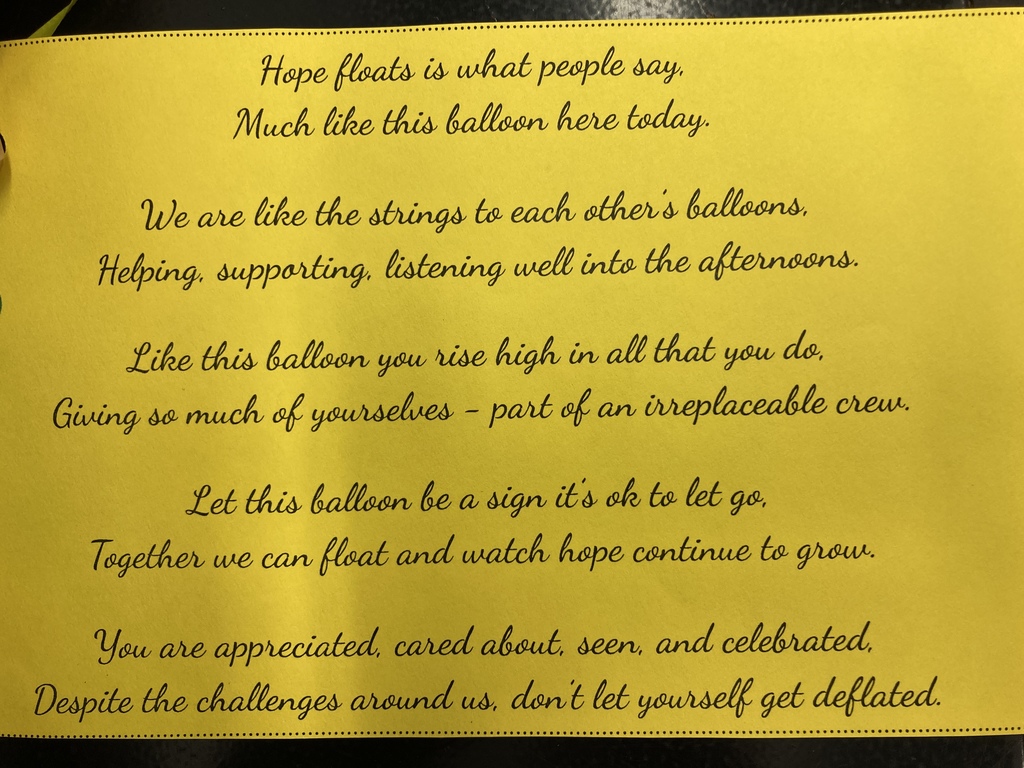 Hope floats is what people say,
Much like this balloon here today.
We are like the strings to each other's balloons,
Helping, supporting, listening well into the afternoons.
Like this balloon you rise high in all that you do,
Giving so much of yourselves - part of an irreplaceable crew.
Let this balloon be a sign it's ok to let go,
Together we can float and watch hope continue to grow.
You are appreciated, cared about, seen, and celebrated,
Despite the challenges around us, don't let yourself get deflated.